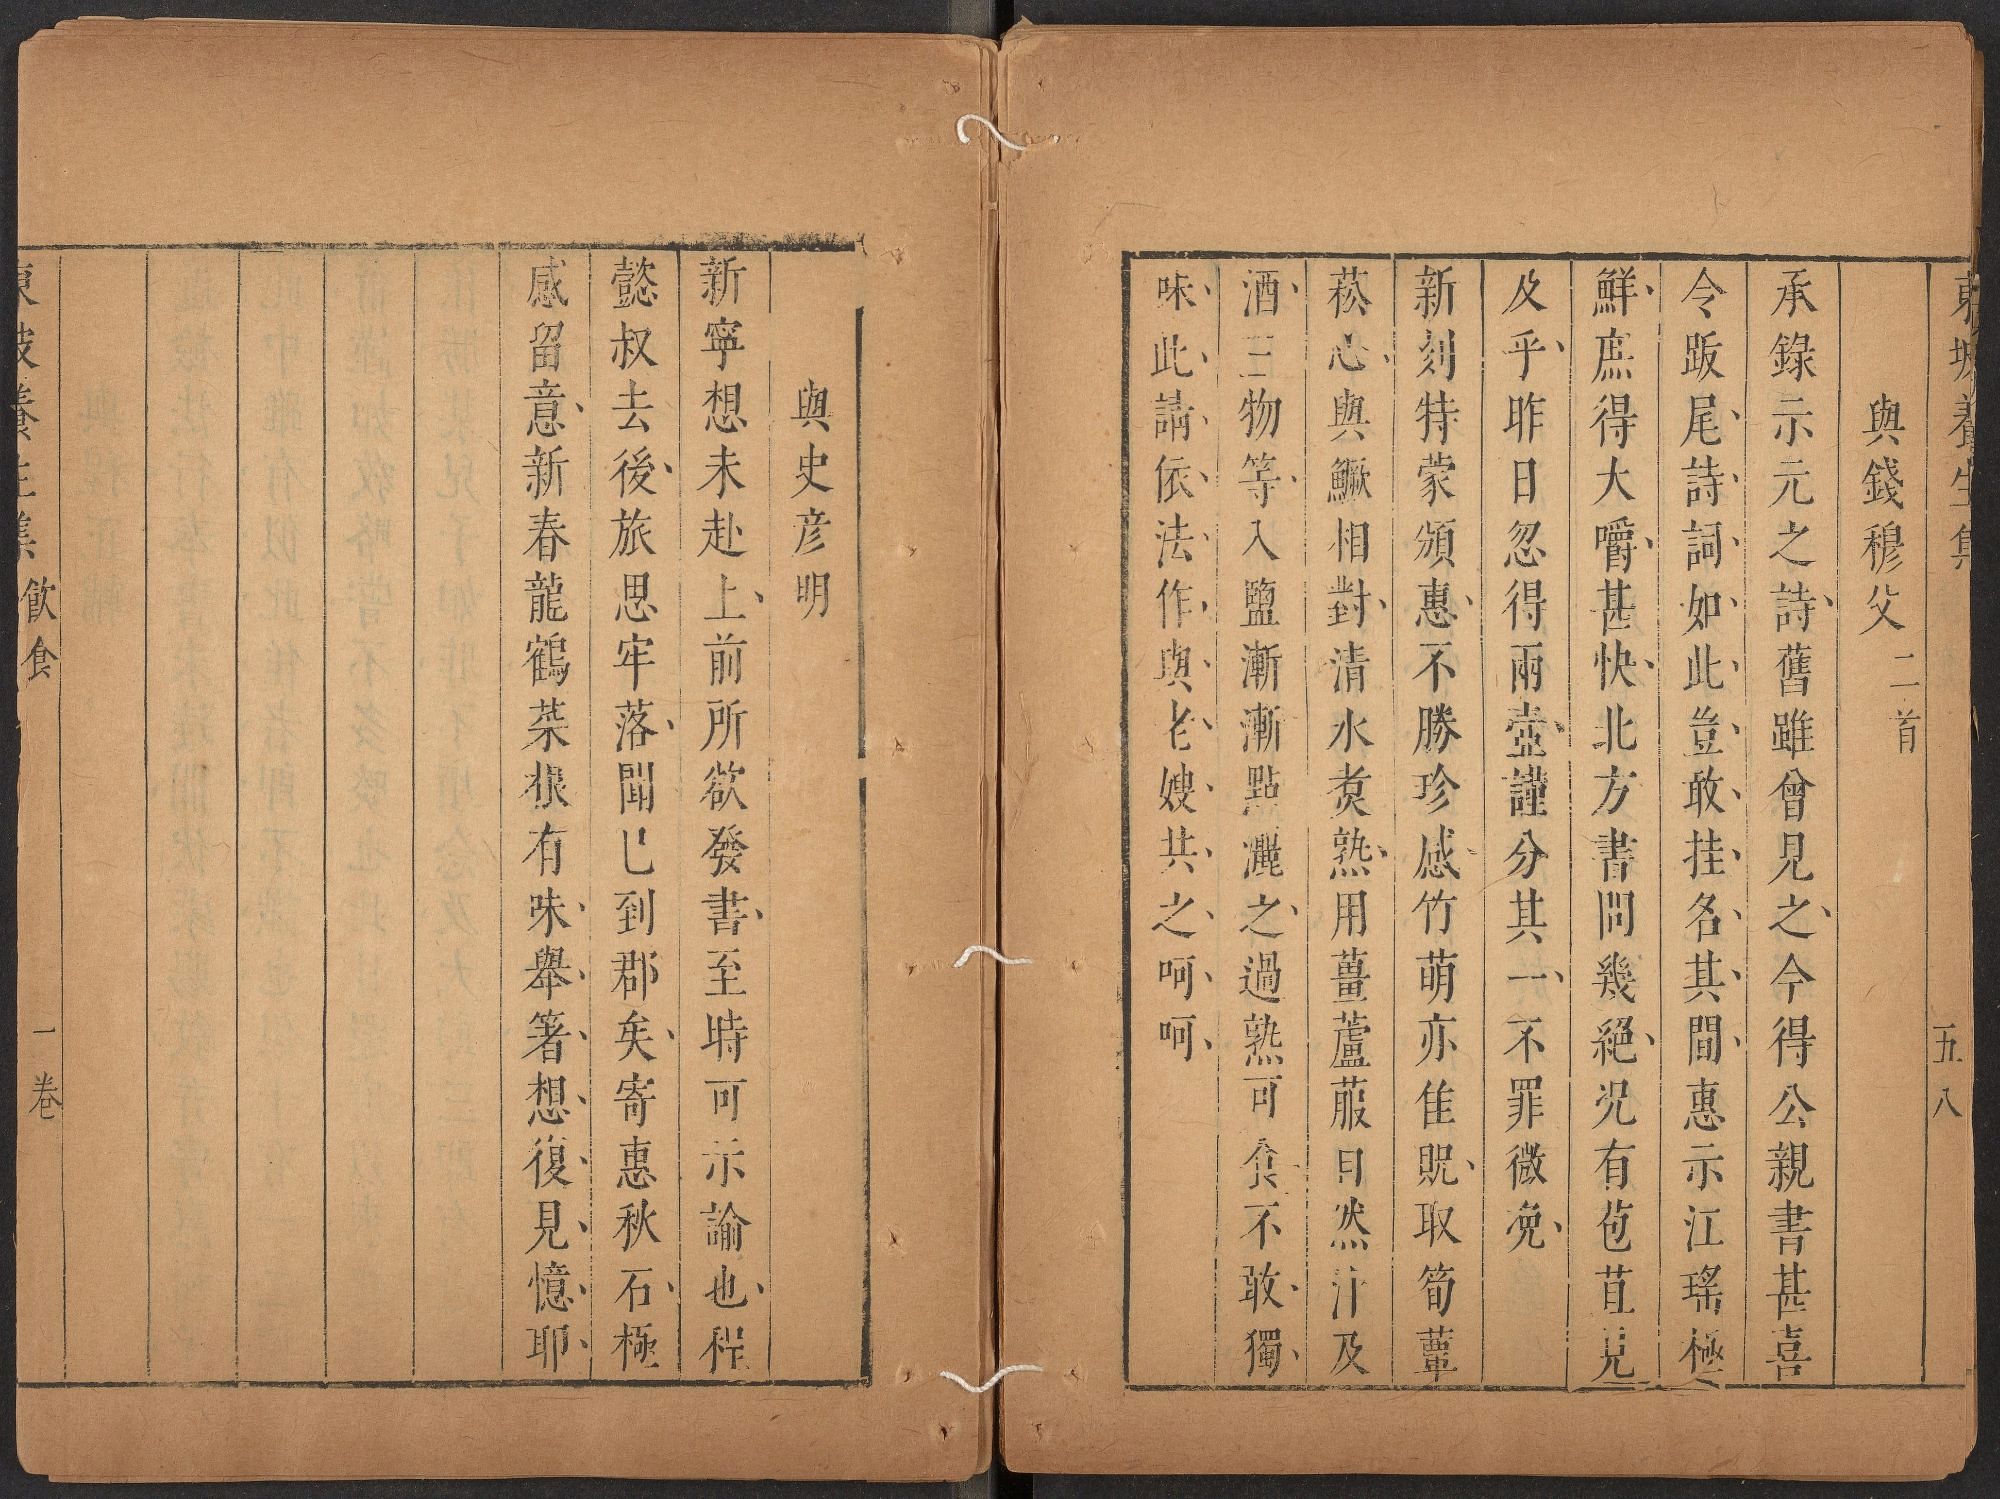 東坡養生集
五八
與錢穆父二首
承錄示元之詩舊雖曾見之今得公親書甚喜
令跋尾詩詞如此豈敢挂名其間惠示江瑤極
鮮庶得大嚼甚快北方書問幾絕況有苞苴見
及乎昨日忽得兩壺謹分其一不罪微浼
新刻特蒙頒惠不勝珍感竹萌亦佳貺取筍蕈
菘心與鱖相對清水煑熟用薑蘆菔自然汁及
酒三物等入鹽漸漸點灑之過熟可食不敢獨
味此請依法作與老嫂共之呵呵
與史彥明
新寧想未赴上前所欲發書至時可示諭也程
懿叔去後旅思牢落聞已到郡矣寄惠秋石極
感留意新春龍鶴菜根有味舉箸想復見憶耶
東坡養生集
飲食
一卷